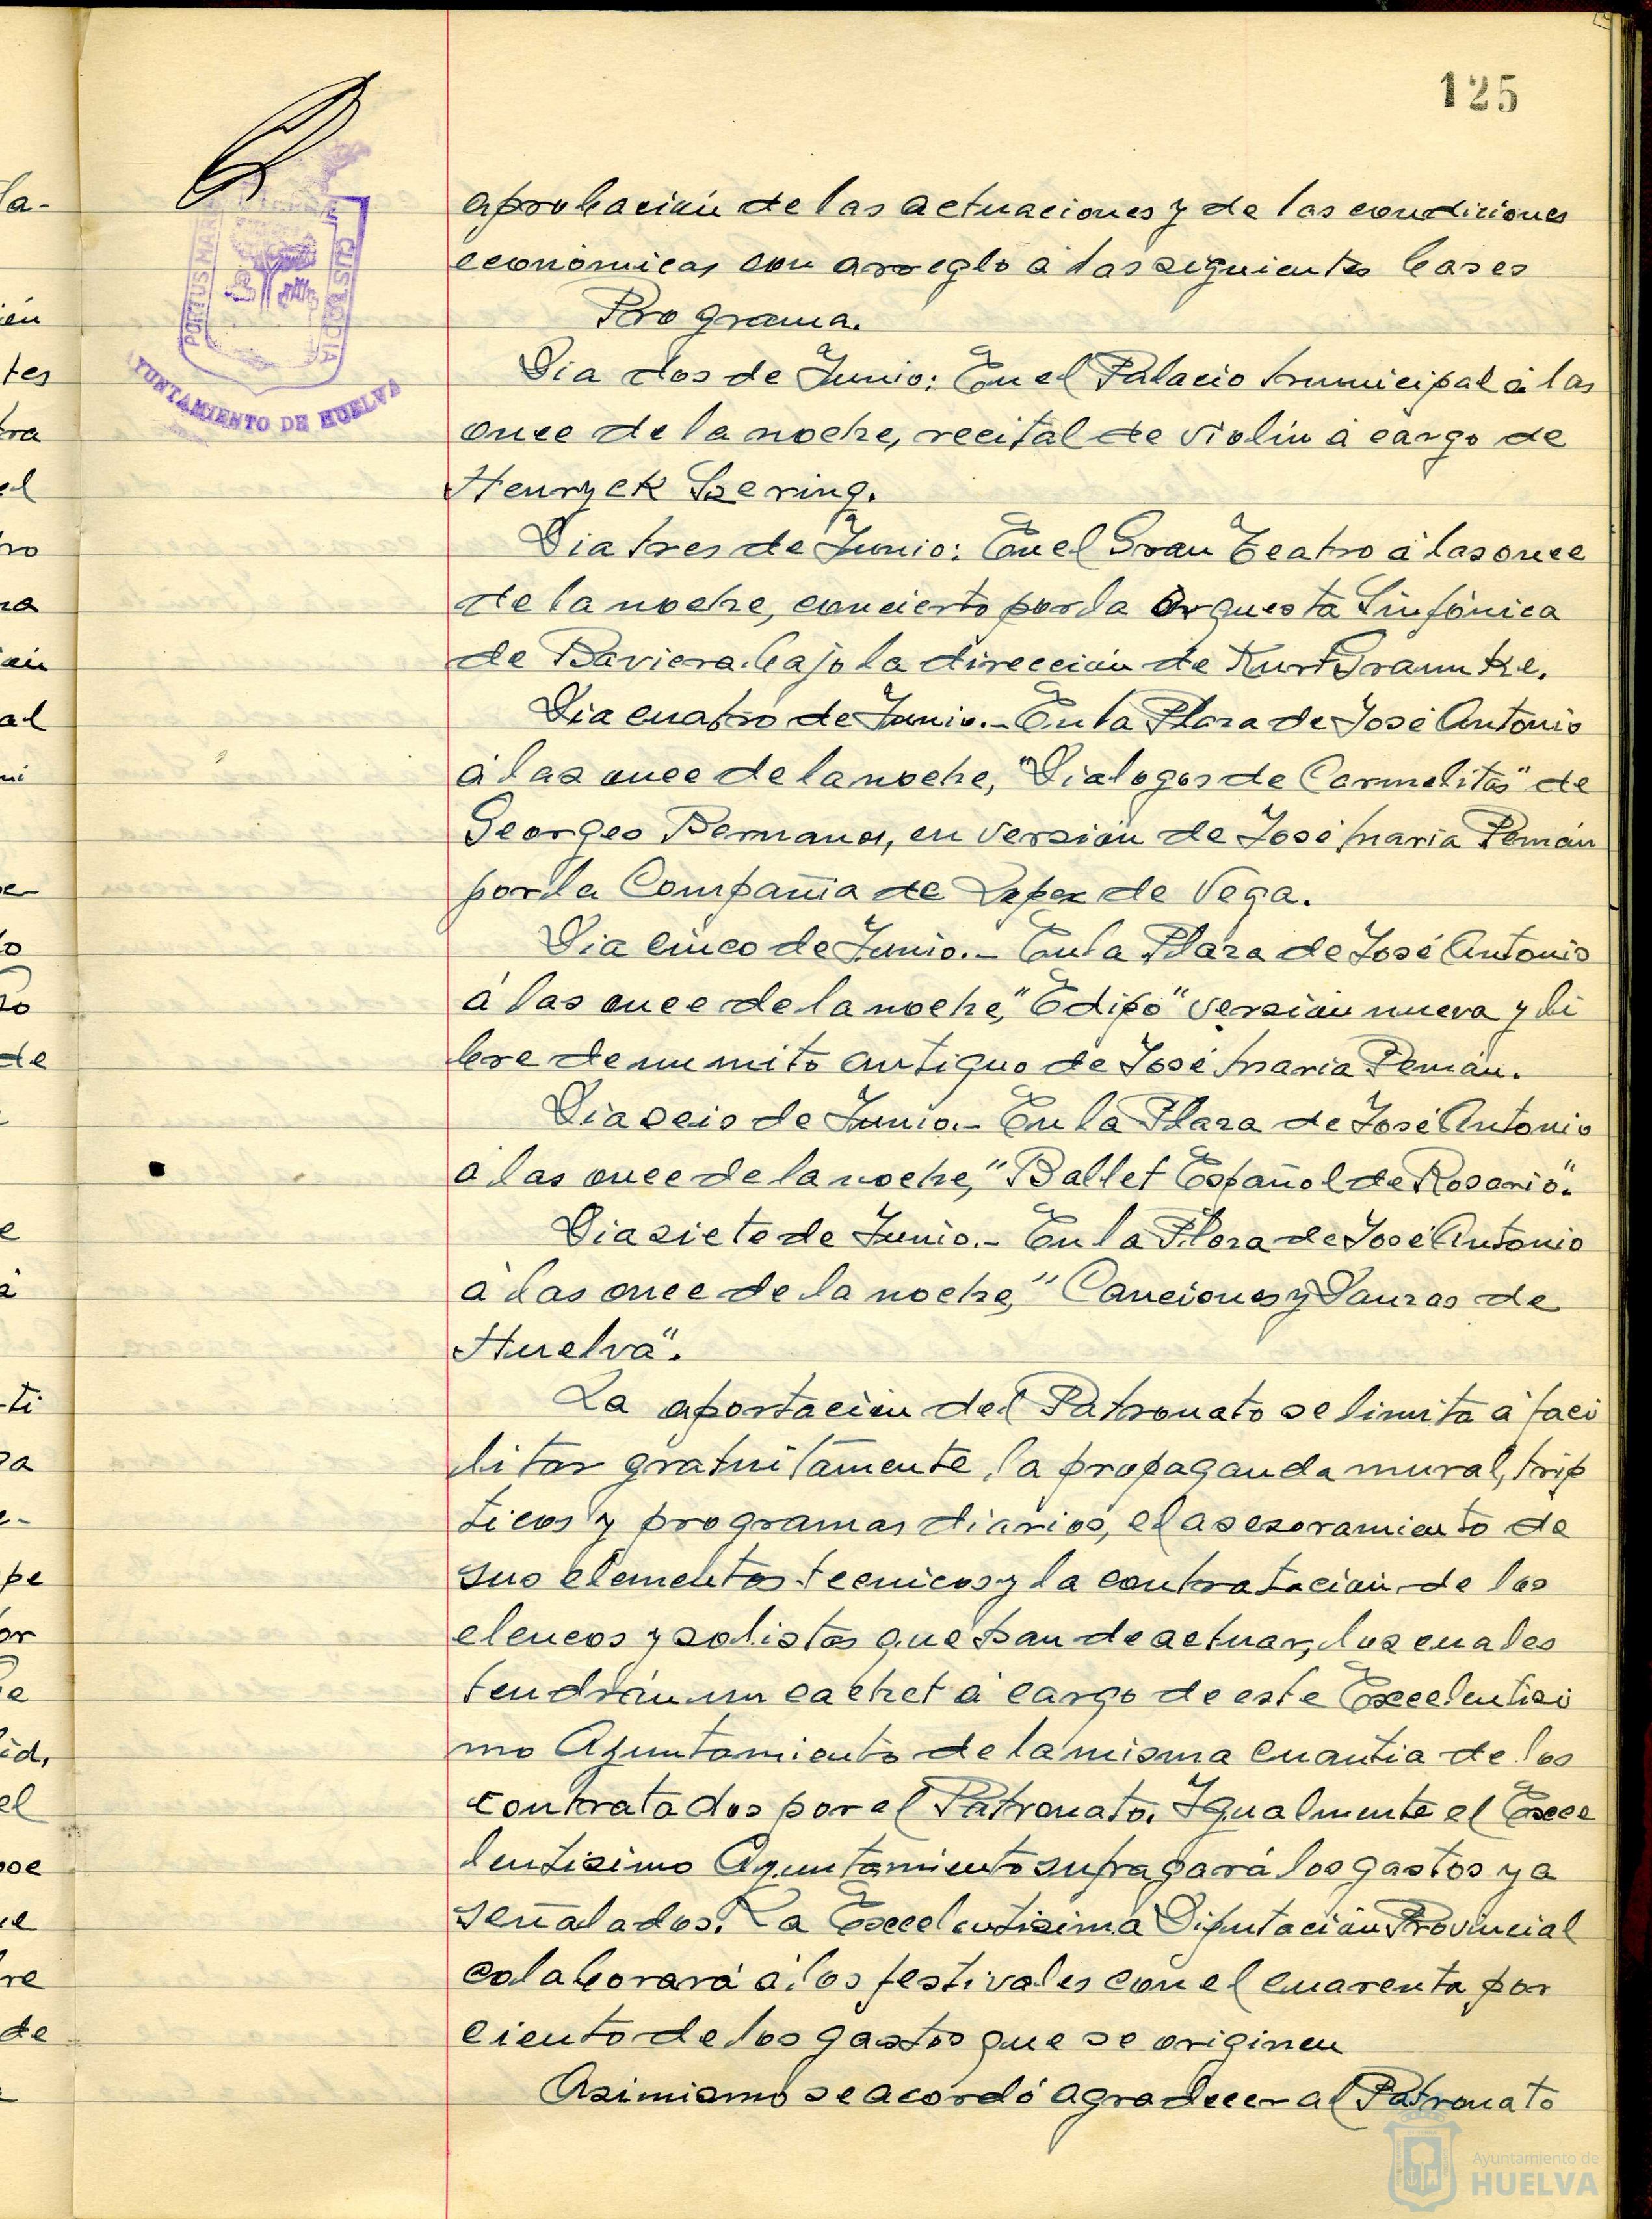 125
aprobación de las actuaciones y de las condiciones
económicas con arreglo á las siguientes bases
Programa.
Dia dos de Junio: En el Palacio Municipal á las
once de la noche, recital de violin á cargo de
Henryek Szering.
Dia tres de Junio: En el Gran Teatro á las once
de la noche, concierto por la Orquesta Sinfónica
de Baviera bajo la dirección de Kurt Graunke.
Dia cuatro de Junio.- En la Plaza de José Antonio
á las once de la noche, "Dialogos de Carmelitas" de
Georges Bernanos, en versión de José Maria Pemán
por la Compañia de Lopez de Vega.
Dia cinco de Junio.- En la Plaza de José Antonio
á las once de la noche, "Edipo" versión nueva y li
bre de un mito antiguo de José Maria Pemán.
Dia seis de Junio.- En la Plaza de José Antonio
á las once de la noche, "Ballet Español de Rosario".
Dia siete de Junio.- En la Plaza de José Antonio
á las once de la noche, "Canciones y Danzas de
Huelva".
La aportación del Patronato se limita á faci
litar gratuitamente la propaganda mural, trip
ticos y programas diarios, el asesoramiento de
sus elementos tecnicos y la contratación de los
elencos y solistas que han de actuar, los cuales
tendrán un cachet á cargo de este Excelentisi
mo Ayuntamiento de la misma cuantia de los
contratados por el Patronato. Igualmente el Exce
lentisimo Ayuntamiento sufragará los gastos ya
señalados. La Excelentisima Diputación Provincial
colaborará á los festivales con el cuarenta por
ciento de los gastos que se originen
Asimismo se acordó agradecer al Patronato
PORTUS MAR
CUSTODIA
YUNTAMIENTO DE HUELVA
la-
ién
tes
tra
el
al
to
de
ti
pe
or
id,
el
re
de
Ayuntamiento de
HUELVA